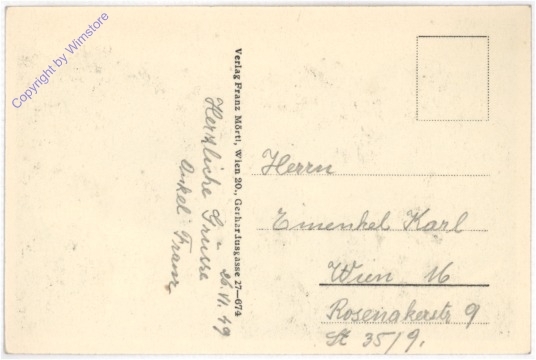 Copyright by Wimstore
Verlag Franz Mörtl, Wien 20., Gerhardusgasse 27—674
Herzliche Grüsse
Onkel Franz
26. VI. 49
Herrn
Emenkel Karl
Wien 16
Rosenackerstr 9
St 35/9.